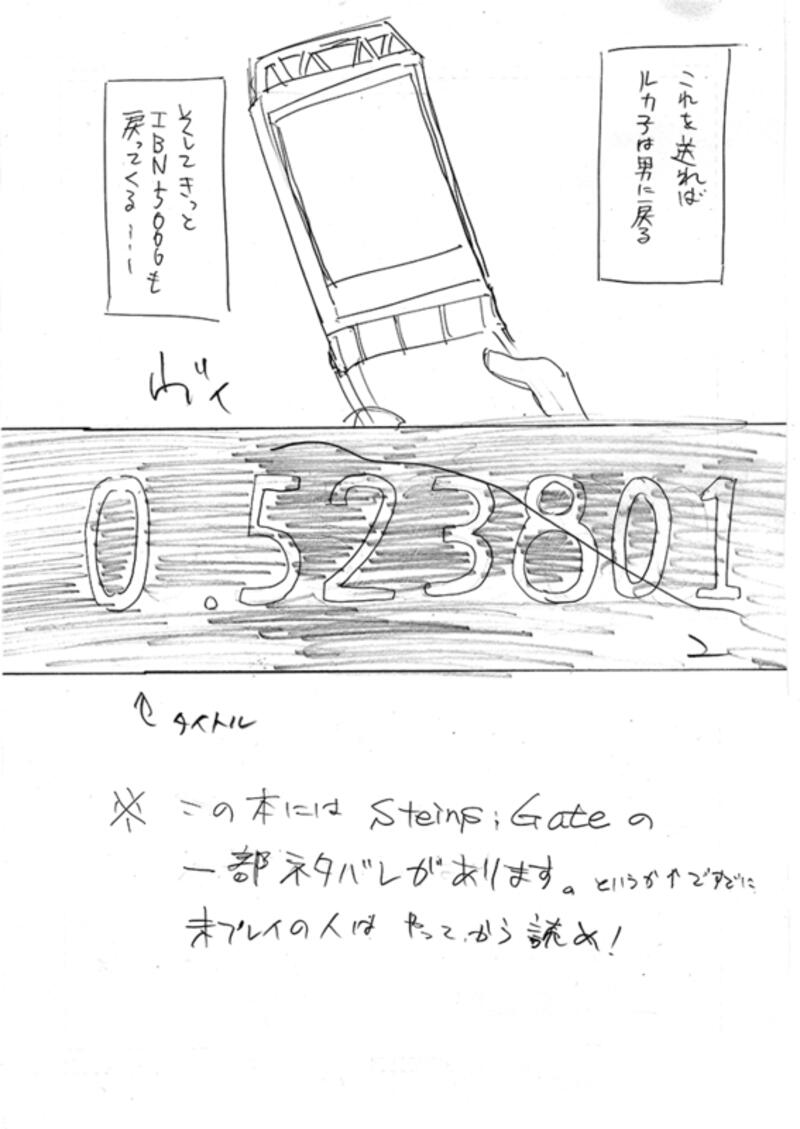 これを送れば
ルカ子は男に戻る
そしてきっと
IBN5000も
戻ってくる…
ヴィ
0.523801
↑タイトル
※ この本には Steins;Gateの
一部ネタバレがあります。というか↑ですでに
未プレイの人は やってから読め!